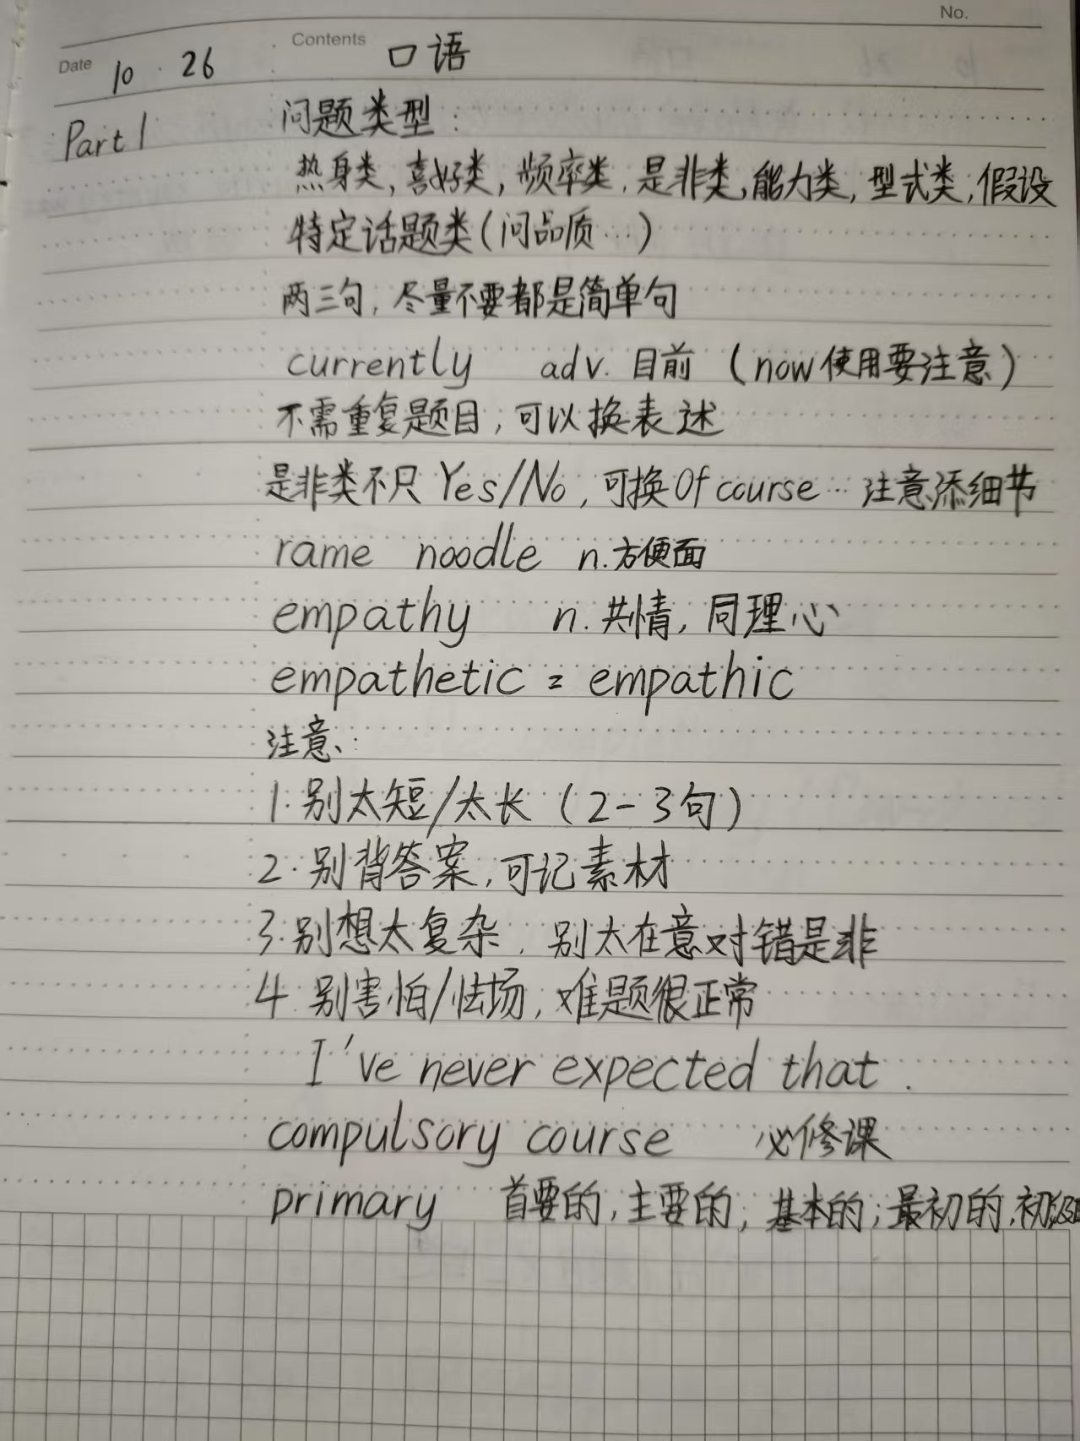 No.
Date 10 · 26 Contents 口语
Part 1 问题类型:
热身类,喜好类,频率类,是非类,能力类,型式类,假设
特定话题类(问品质…)
两三句,尽量不要都是简单句
currently adv. 目前 (now使用要注意)
不需重复题目,可以换表述
是非类不只 Yes/No,可换Of course… 注意添细节
rame noodle n.方便面
empathy n.共情,同理心
empathetic = empathic
注意:
1.别太短/太长(2-3句)
2.别背答案,可记素材
3.别想太复杂,别太在意对错是非
4.别害怕/怯场,难题很正常
I've never expected that.
compulsory course 必修课
primary 首要的,主要的;基本的;最初的,初级的